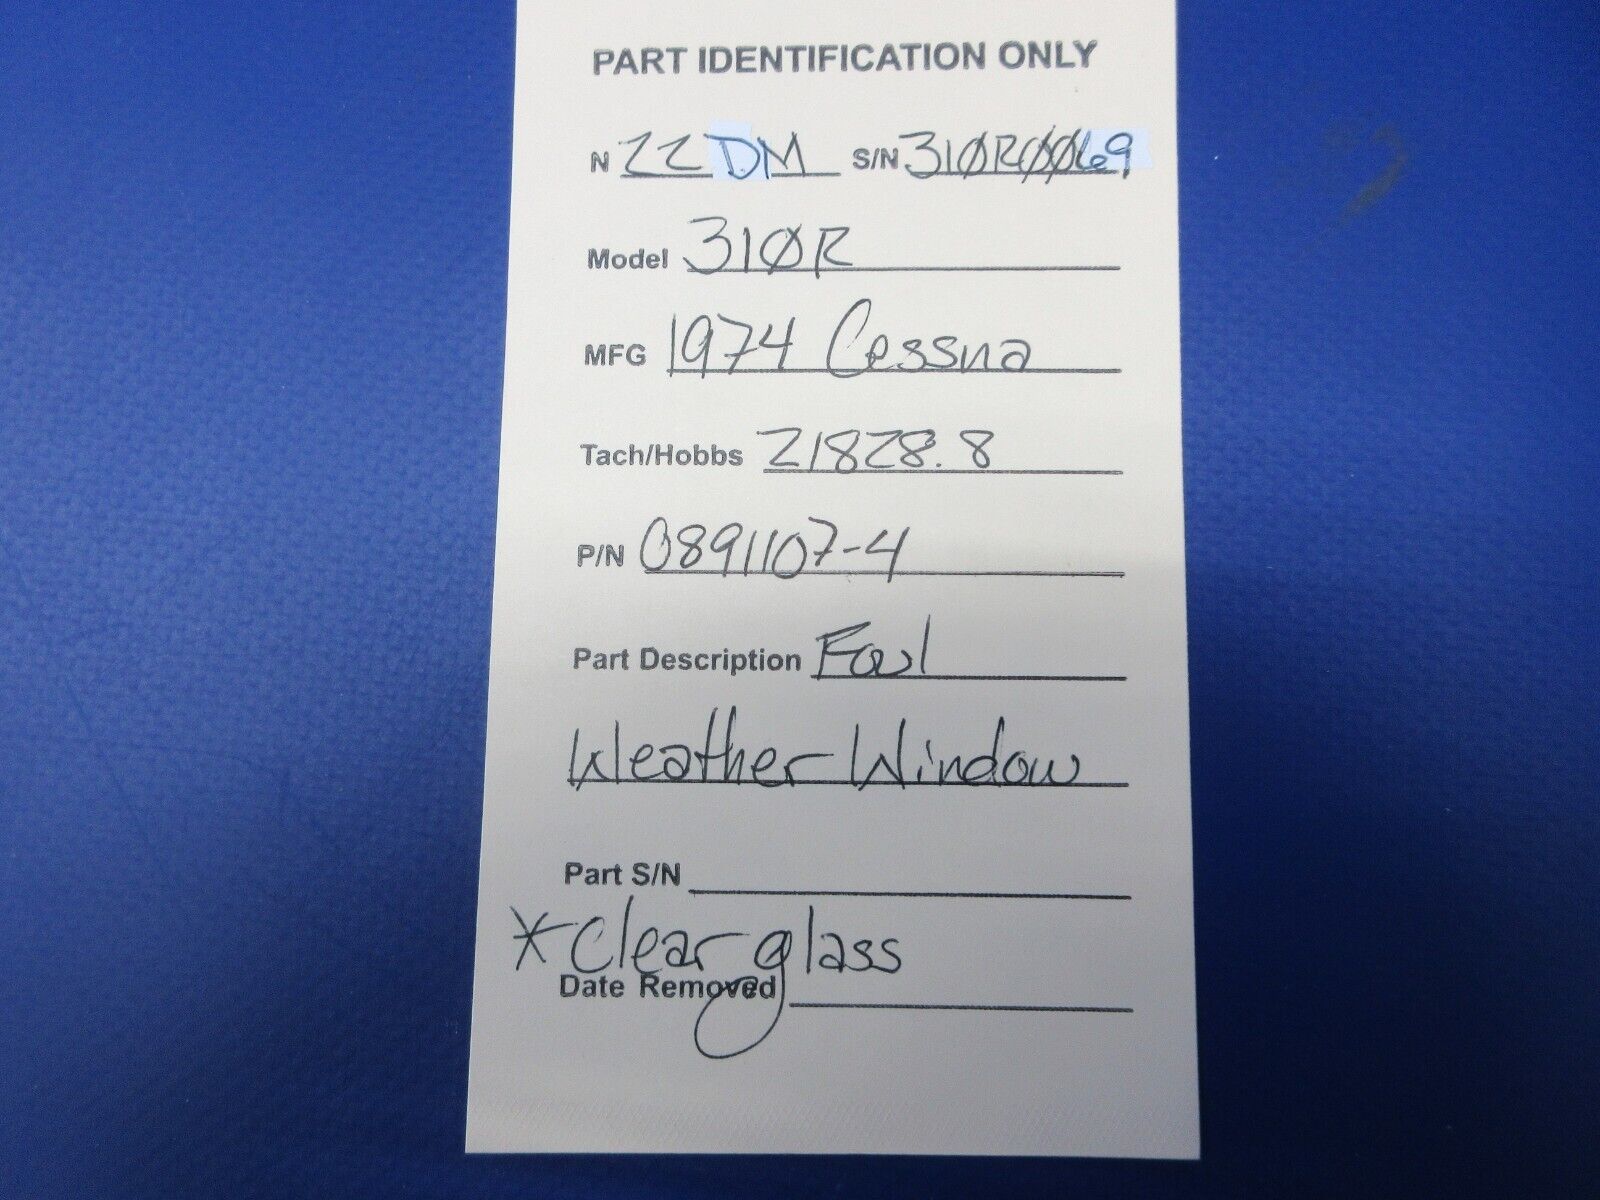 PART IDENTIFICATION ONLY
N 22DM S/N 310R0069
Model 310R
MFG 1974 Cessna
Tach/Hobbs 21828.8
P/N 0891107-4
Part Description Foul
Weather Window
Part S/N
*Clear glass
Date Removed